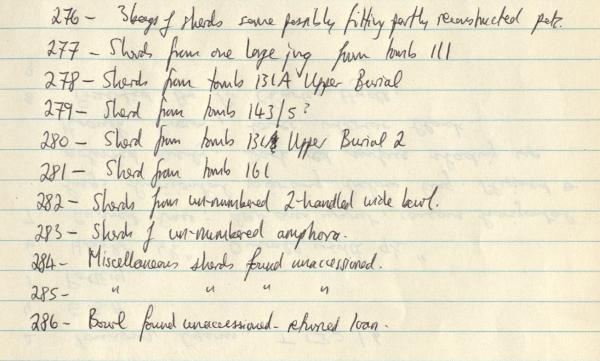 276 - 3 bags of sherds some possibly fitting partly reconstructed pots.
277 - Sherds from one large jug from tomb 111
278 - Sherds from tomb 131A Upper Burial
279 - Sherd from tomb 143/5?
280 - Sherd from tomb Upper Burial 2
281 - Sherd from tomb 161
282 - Sherds from un-numbered 2-handled wide bowl.
283 - Sherds of un-numbered amphora.
284 - Miscellaneous sherds found unaccessioned.
285 - " " " "
286 - Bowl found unaccessioned - returned loan.